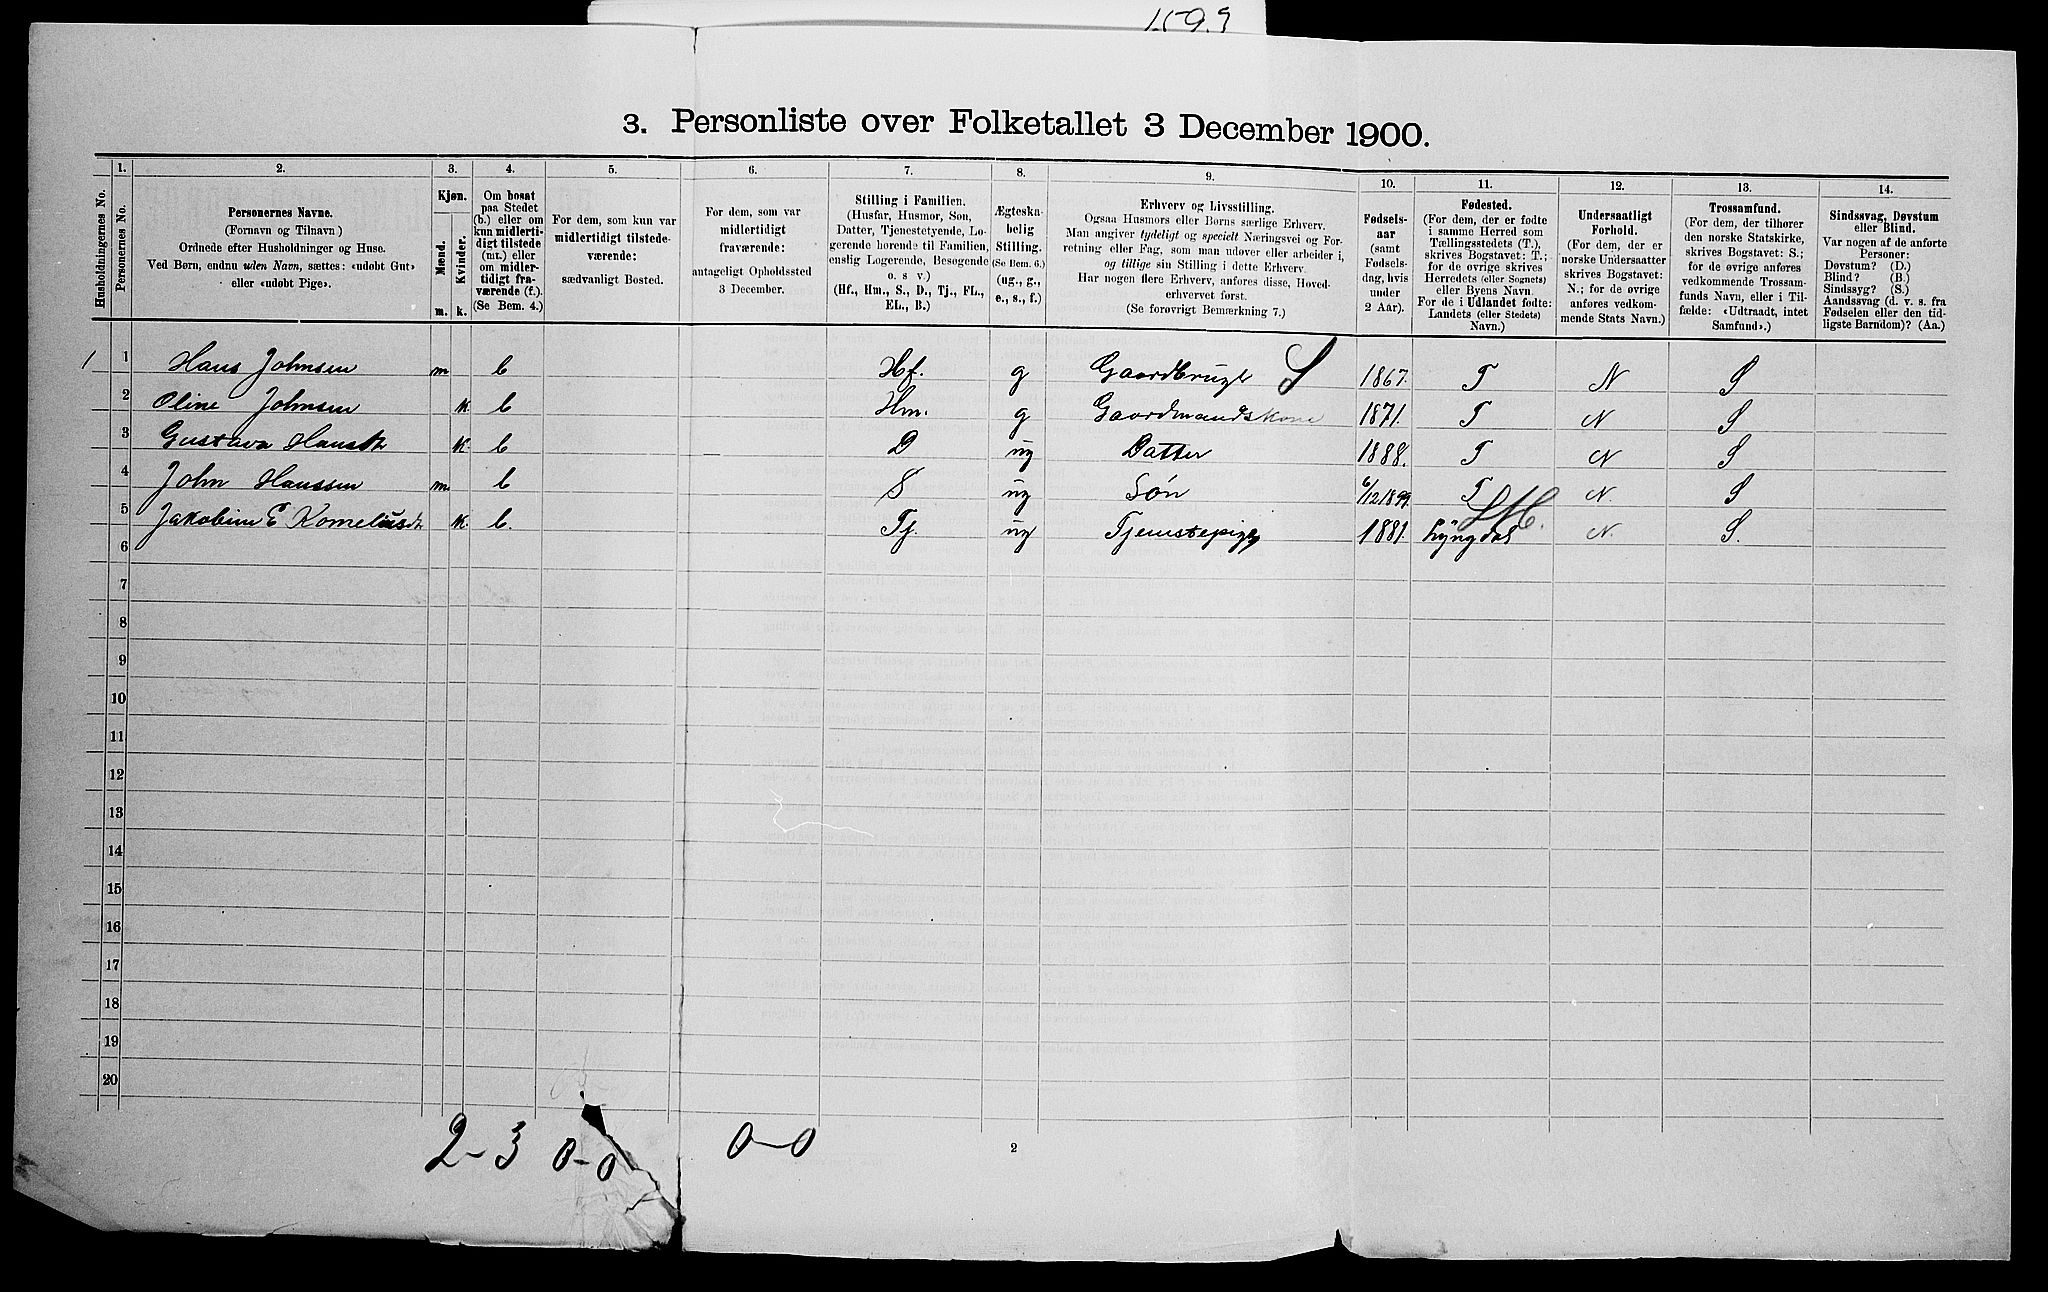 1593
3. Personliste over Folketallet 3 December 1900.
Husholdningernes No.
1.
Personernes No.
2.
Personernes Navne.
(Fornavn og Tilnavn)
Ordnede efter Husholdninger og Huse.
Ved Børn, endnu uden Navn, sættes: «udøbt Gut»
eller «udøbt Pige».
3.
Kjøn.
Mænd.
Kvinder.
m. k.
4.
Om bosat
paa Stedet
(b.) eller om
kun midlerti-
digt tilstede
(mt.) eller
om midler-
tidigt fra-
værende (f.).
(Se Bem. 4.)
5.
For dem, som kun var
midlertidigt tilstede-
værende:
sædvanligt Bosted.
6.
For dem, som var
midlertidigt
fraværende:
antageligt Opholdssted
3 December.
7.
Stilling i Familien.
(Husfar, Husmor, Søn,
Datter, Tjenestetyende, Lo-
gerende hørende til Familien,
enslig Logerende, Besøgende
o. s v.)
(Hf., Hm., S., D., Tj., FL.,
EL., B.)
8.
Ægteska-
belig
Stilling.
(Se Bem. 6.)
(ug., g.,
e., s., f.)
9.
Erhverv og Livsstilling.
Ogsaa Husmors eller Børns særlige Erhverv.
Man angiver tydeligt og specielt Næringsvei og For-
retning eller Fag, som man udøver eller arbeider i,
og tillige sin Stilling i dette Erhverv.
Har nogen flere Erhverv, anføres disse, Hoved-
erhvervet først.
(Se forøvrigt Bemærkning 7.)
10.
Fødsels-
aar
(samt
Fødsels-
dag, hvis
under
2 Aar).
11.
Fødested.
(For dem, der er fødte
i samme Herred som
Tællingsstedets (T.),
skrives Bogstavet: T.;
for de øvrige skrives
Herredets (eller Sognets)
eller Byens Navn.
For de i Udlandet fødte:
Landets (eller Stedets)
Navn.)
12.
Undersaatligt
Forhold.
(For dem, der er
norske Undersaatter
skrives Bogstavet:
N.; for de øvrige
anføres vedkom-
mende Stats Navn.)
13.
Trossamfund.
(For dem, der tilhører
den norske Statskirke,
skrives Bogstavet: S.;
for de øvrige anføres
vedkommende Trossam-
funds Navn, eller i Til-
fælde: «Udtraadt, intet
Samfund».)
14.
Sindssvag, Døvstum
eller Blind.
Var nogen af de anførte
Personer:
Døvstum? (D.)
Blind? (B.)
Sindssyg? (S.)
Aandssvag (d. v. s. fra
Fødselen eller den tid-
ligste Barndom)? (Aa.)
1 1 Hans Johnsen m b Hf. g Gaardbruger S 1867. T N S
2 Oline Johnsen k. b Hm. g Gaardmandskone 1871. T N S
3 Gustava Hansdtr k. b D ug Datter 1888. T N S
4 John Hanssen m. b S ug Søn 6/12 1899. T N. S
5 Jakobine E Korneliusdtr k. b. Tj. ug Tjenestepige 1881. Lyngdal N. S.
6
7
8
9
10
11
12
13
14
15
16
17
18
19
20
2-3 0-0 0-0
2